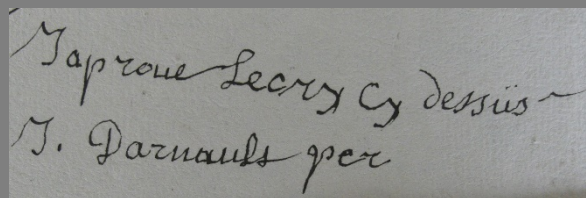 Japroue Lecry cy dessüs
J. Darnault per